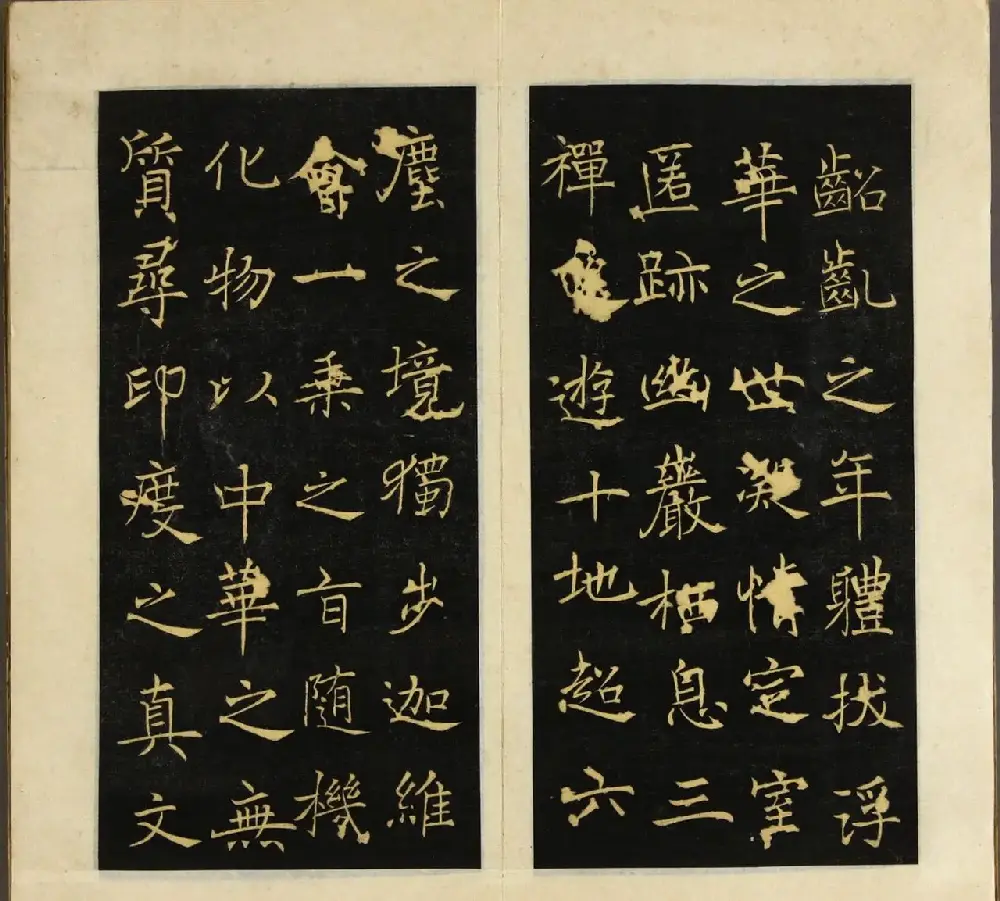 齠齔之年體拔浮
華之世凝情定室
匿跡幽巖栖息三
禪遊十地超六
塵之境獨步迦維
會一乘之旨隨機
化物以中華之無
質尋印度之真文